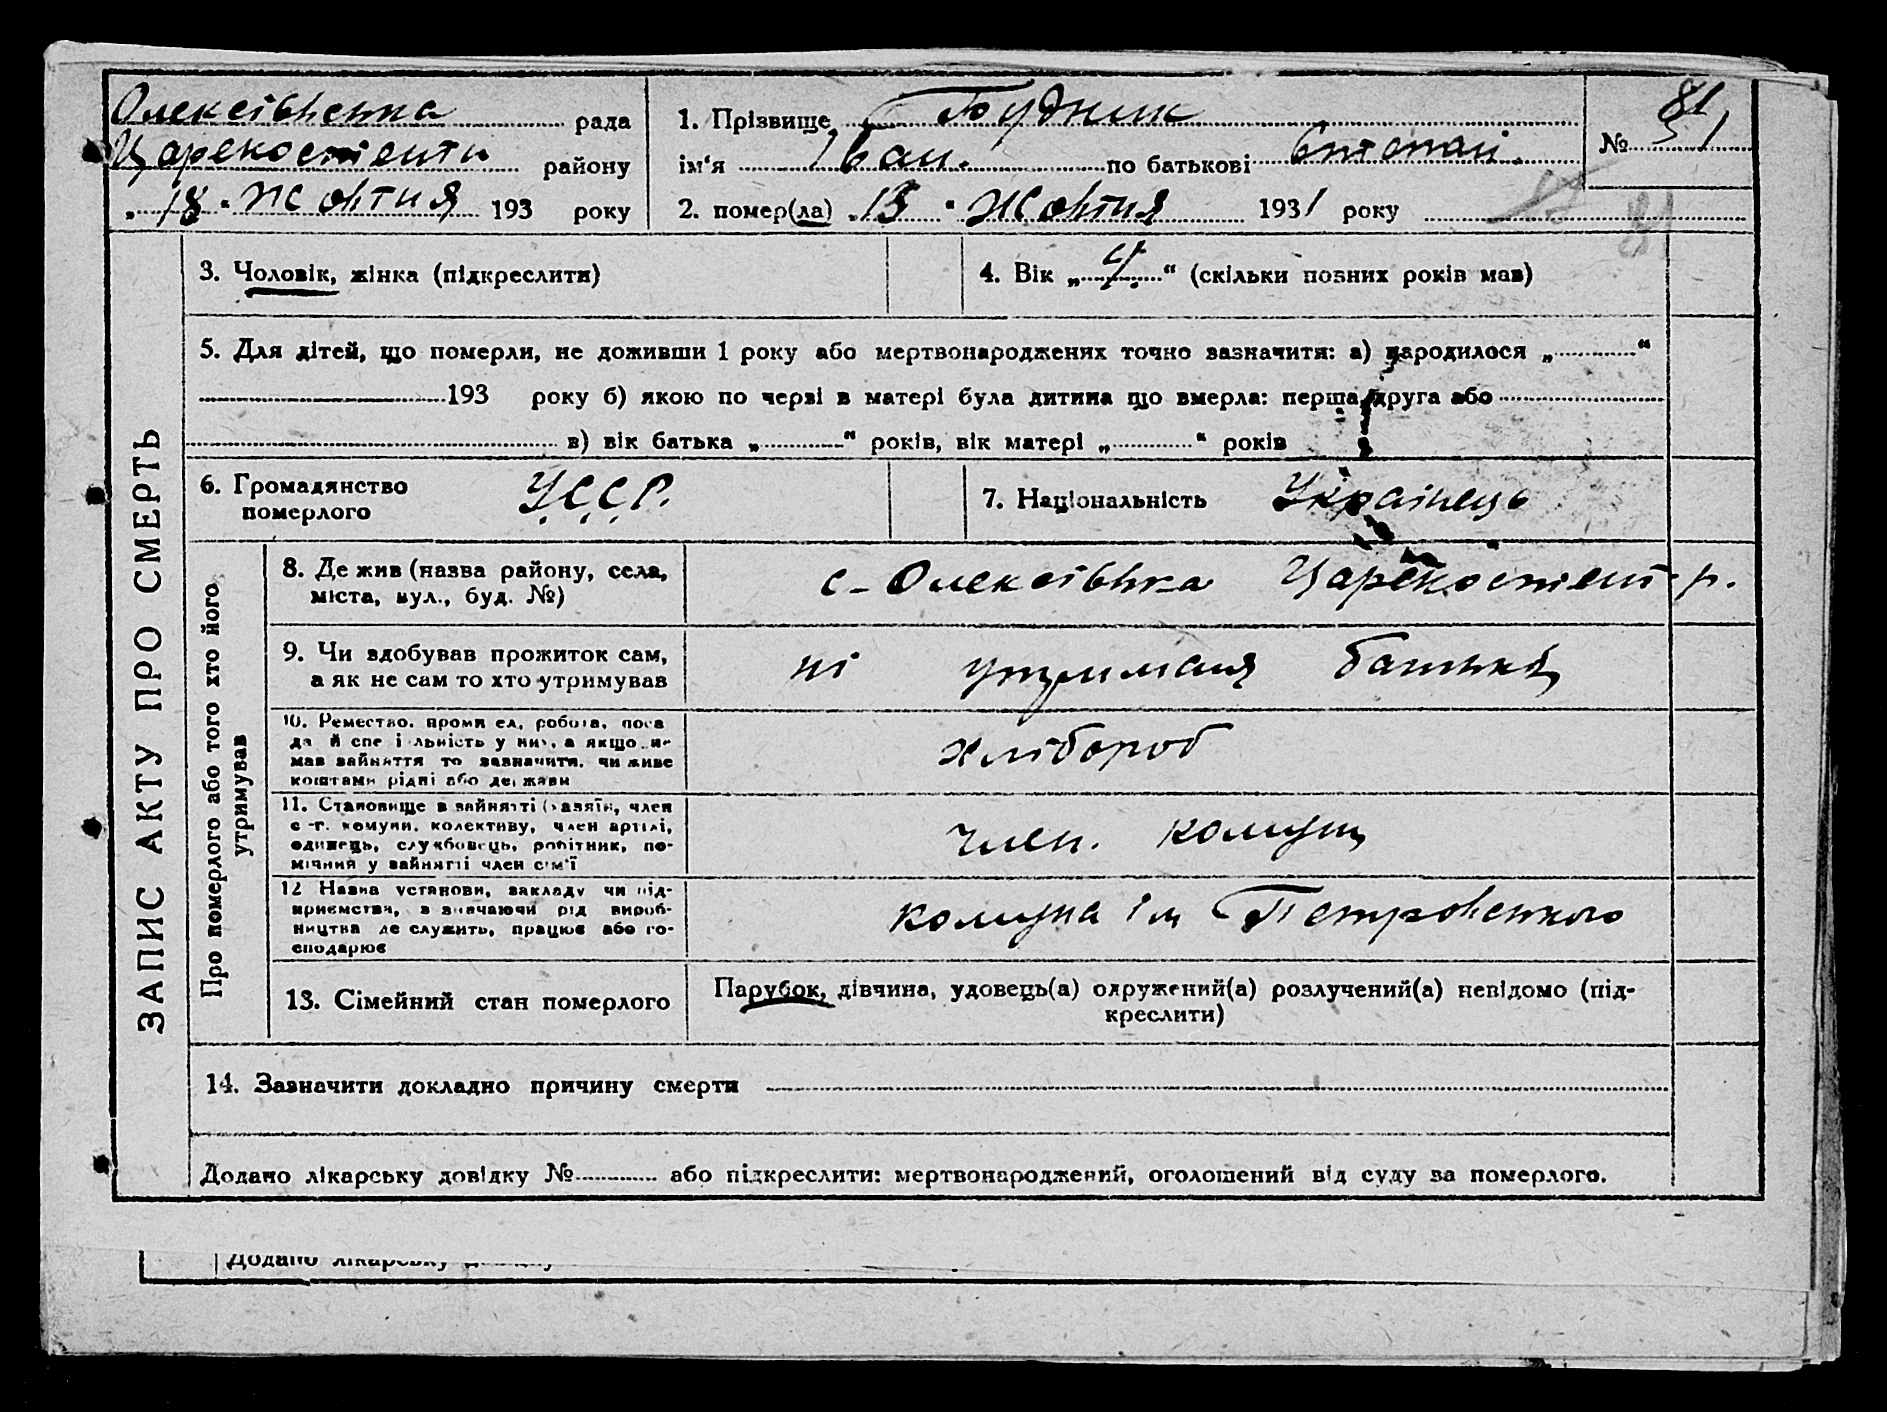 Олексіївська рада
Царекостенти району
„18" Жовтня 193 року
1. Прізвище Будник
ім'я Іван. по батькові
2. помер(ла) „13" Жовтня 1931 року
№ 81
81
3. Чоловік, жінка (підкреслити)
4. Вік „4" (скільки повних років мав)
5. Для дітей, що померли, не доживши 1 року або мертвонароджених точно зазначити: а) народилося „ "
193 року б) якою по черзі в матері була дитина що вмерла: перша, друга або
в) вік батька „ " років, вік матері „ " років
6. Громадянство померлого У.С.С.Р.
7. Національність Українець
ЗАПИС АКТУ ПРО СМЕРТЬ
Про померлого або того хто його утримував
8. Де жив (назва району, села,
міста, вул., буд. №)
с-Олексіївка Царекостент р.
9. Чи здобував прожиток сам,
а як не сам то хто утримував
ні утримання батька
10. Ремество, промисел, робота, поса
да й спеціальність у них, а якщо не
мав зайняття то зазначити, чи живе
коштами рідні або держави
хлібороб
11. Становище в зайнятті (хазяїн, член
с-г. комуни, колективу, член артілі,
одинець, службовець, робітник, по-
мічний у зайнятті член сім'ї
член. комуни
12 Назва установи, закладу чи під-
приємства, зазначаючи рід вироб-
ництва де служить, працює або го-
сподарює
комуна Ім Петровського
13. Сімейний стан померлого
Парубок, дівчина, удовець(а) одружений(а) розлучений(а) невідомо (під-
креслити)
14. Зазначити докладно причину смерти
Додано лікарську довідку № або підкреслити: мертвонароджений, оголошений від суду за померлого.
Додано лікарську довідку